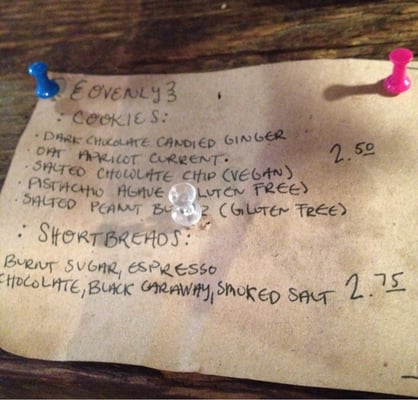 EOVENLY3
: COOKIES:
· DARK CHOCOLATE CANDIED GINGER
· OAT APRICOT CURRENT · 2.50
· SALTED CHOCOLATE CHIP (VEGAN)
· PISTACHIO AGAVE LUTEN FREE)
· SALTED PEANUT BU R (GLUTEN FREE)
: SHORTBREADS:
BURNT SUGAR, ESPRESSO
CHOCOLATE, BLACK CARAWAY, SMOKED SALT 2.75